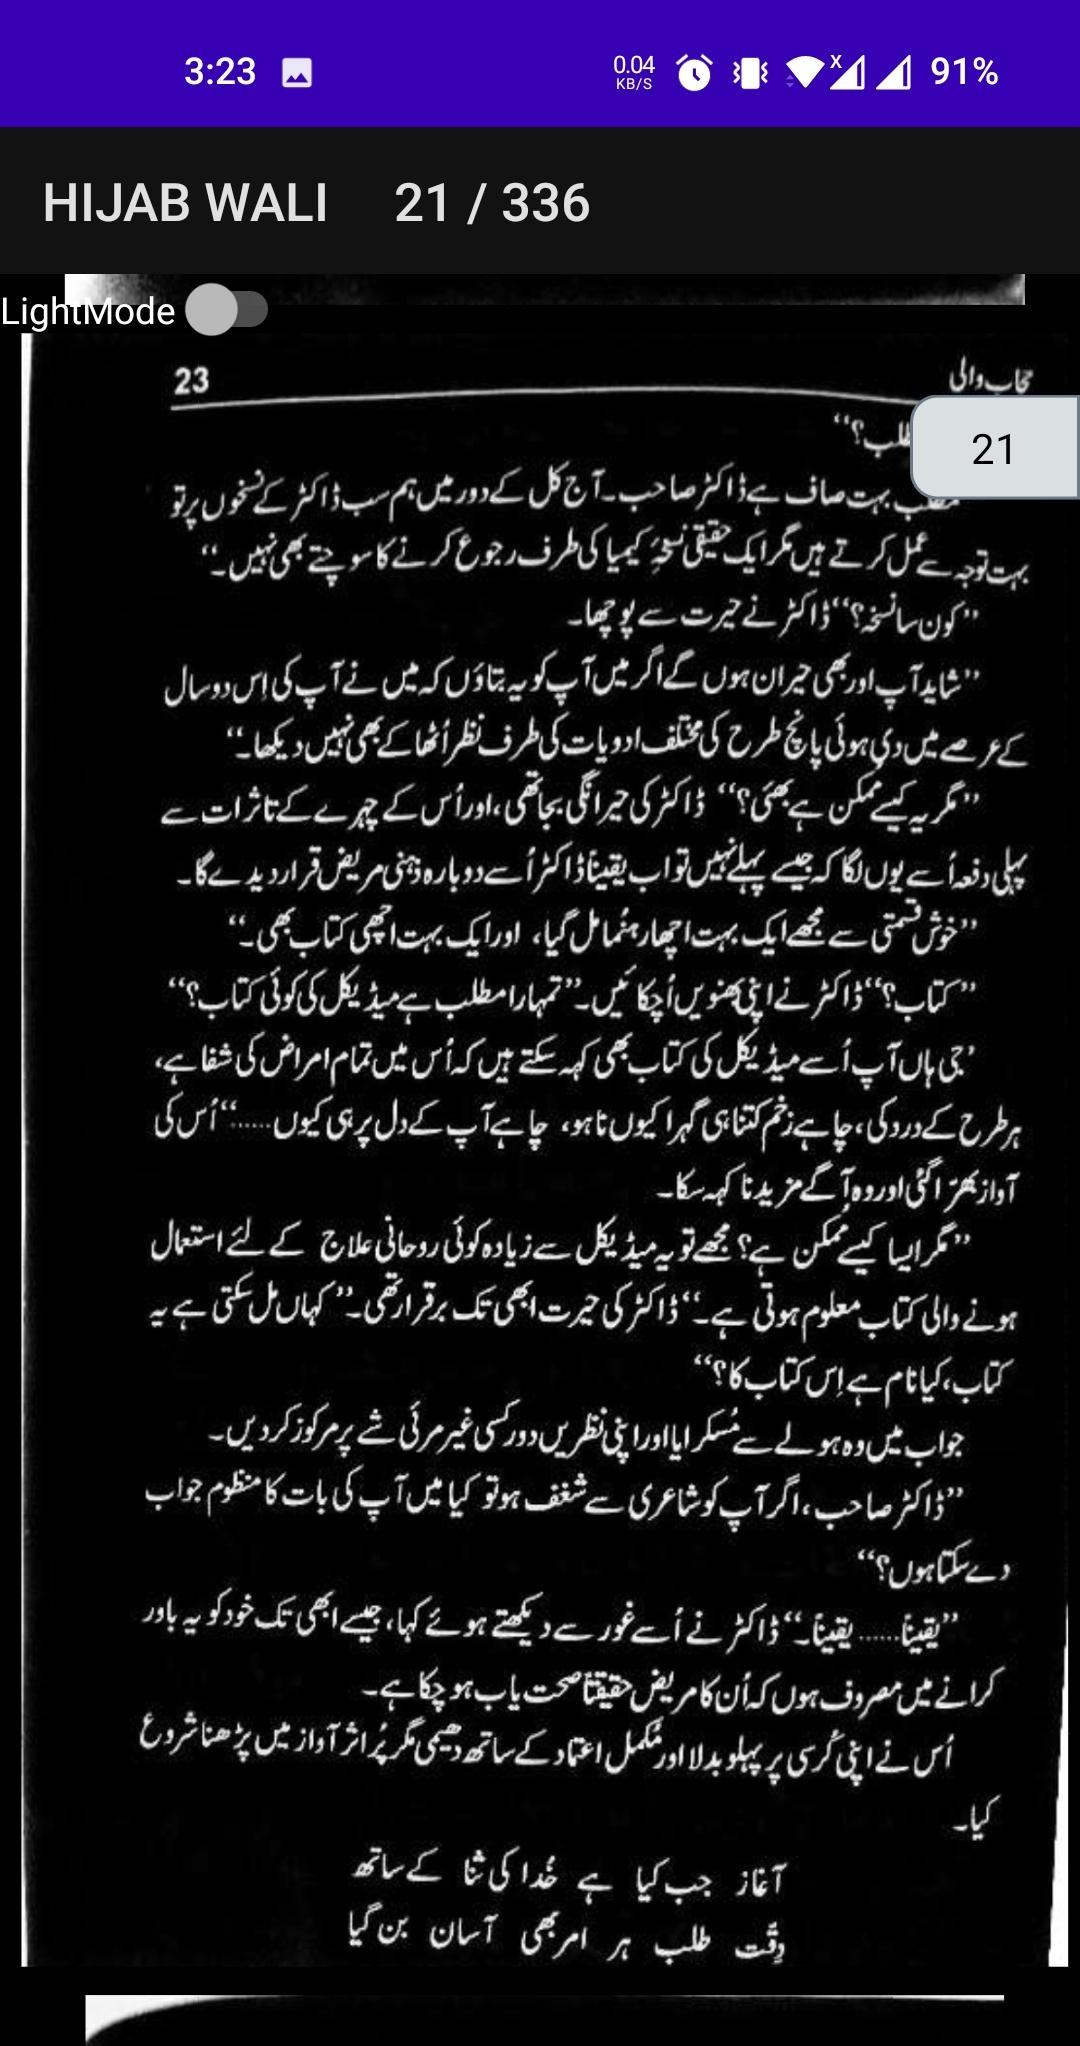 3:23 0.04 KB/S 91%
HIJAB WALI 21 / 336
LightMode
حجاب والی 23
21
بہت صاف ہے ڈاکٹر صاحب۔ آج کل کے دور میں ہم سب ڈاکٹر کے نسخوں پر تو
بہت توجہ سے عمل کرتے ہیں مگر ایک حقیقی نسخۂ کیمیا کی طرف رجوع کرنے کا سوچتے بھی نہیں۔‘‘
’’کون سا نسخہ؟‘‘ ڈاکٹر نے حیرت سے پوچھا۔
’’شاید آپ اور بھی حیران ہوں گے اگر میں آپ کو یہ بتاؤں کہ میں نے آپ کی اس دو سال
کے عرصے میں دی ہوئی پانچ طرح کی مختلف ادویات کی طرف نظر اُٹھا کے بھی نہیں دیکھا۔‘‘
’’مگر یہ کیسے ممکن ہے بھئی؟‘‘ ڈاکٹر کی حیرانگی بجا تھی، اور اُس کے چہرے کے تاثرات سے
پہلی دفعہ اُسے یوں لگا کہ جیسے پہلے نہیں تو اب یقیناً ڈاکٹر اُسے دوبارہ ذہنی مریض قرار دیدے گا۔
’’خوش قسمتی سے مجھے ایک بہت اچھا رہنُما مل گیا، اور ایک بہت اچھی کتاب بھی۔‘‘
’’کتاب؟‘‘ ڈاکٹر نے اپنی بھنویں اُچکائیں۔ ’’تمہارا مطلب ہے میڈیکل کی کوئی کتاب؟‘‘
’جی ہاں آپ اُسے میڈیکل کی کتاب بھی کہہ سکتے ہیں کہ اُس میں تمام امراض کی شفا ہے،
ہر طرح کے درد کی، چاہے زخم کتنا ہی گہرا کیوں نا ہو، چاہے آپ کے دل پر ہی کیوں......‘‘ اُس کی
آواز بھرّا گئی اور وہ آگے مزید نا کہہ سکا۔
’’مگر ایسا کیسے مُمکن ہے؟ مجھے تو یہ میڈیکل سے زیادہ کوئی روحانی علاج کے لئے استعمال
ہونے والی کتاب معلوم ہوتی ہے۔‘‘ ڈاکٹر کی حیرت ابھی تک برقرار تھی۔ ’’کہاں مل سکتی ہے یہ
کتاب، کیا نام ہے اِس کتاب کا؟‘‘
جواب میں وہ ہولے سے مُسکرایا اور اپنی نظریں دور کسی غیر مرئی شے پر مرکوز کر دیں۔
’’ڈاکٹر صاحب، اگر آپ کو شاعری سے شغف ہو تو کیا میں آپ کی بات کا منظوم جواب
دے سکتا ہوں؟‘‘
’’یقیناً...... یقیناً۔‘‘ ڈاکٹر نے اُسے غور سے دیکھتے ہوئے کہا، جیسے ابھی تک خود کو یہ باور
کرانے میں مصروف ہوں کہ اُن کا مریض حقیقتاً صحت یاب ہو چکا ہے۔
اُس نے اپنی کُرسی پر پہلو بدلا اور مُکمل اعتماد کے ساتھ دھیمی مگر پُر اثر آواز میں پڑھنا شروع
کیا۔
آغاز جب کیا ہے خُدا کی ثنا کے ساتھ
دِقّت طلب ہر امر بھی آسان بن گیا